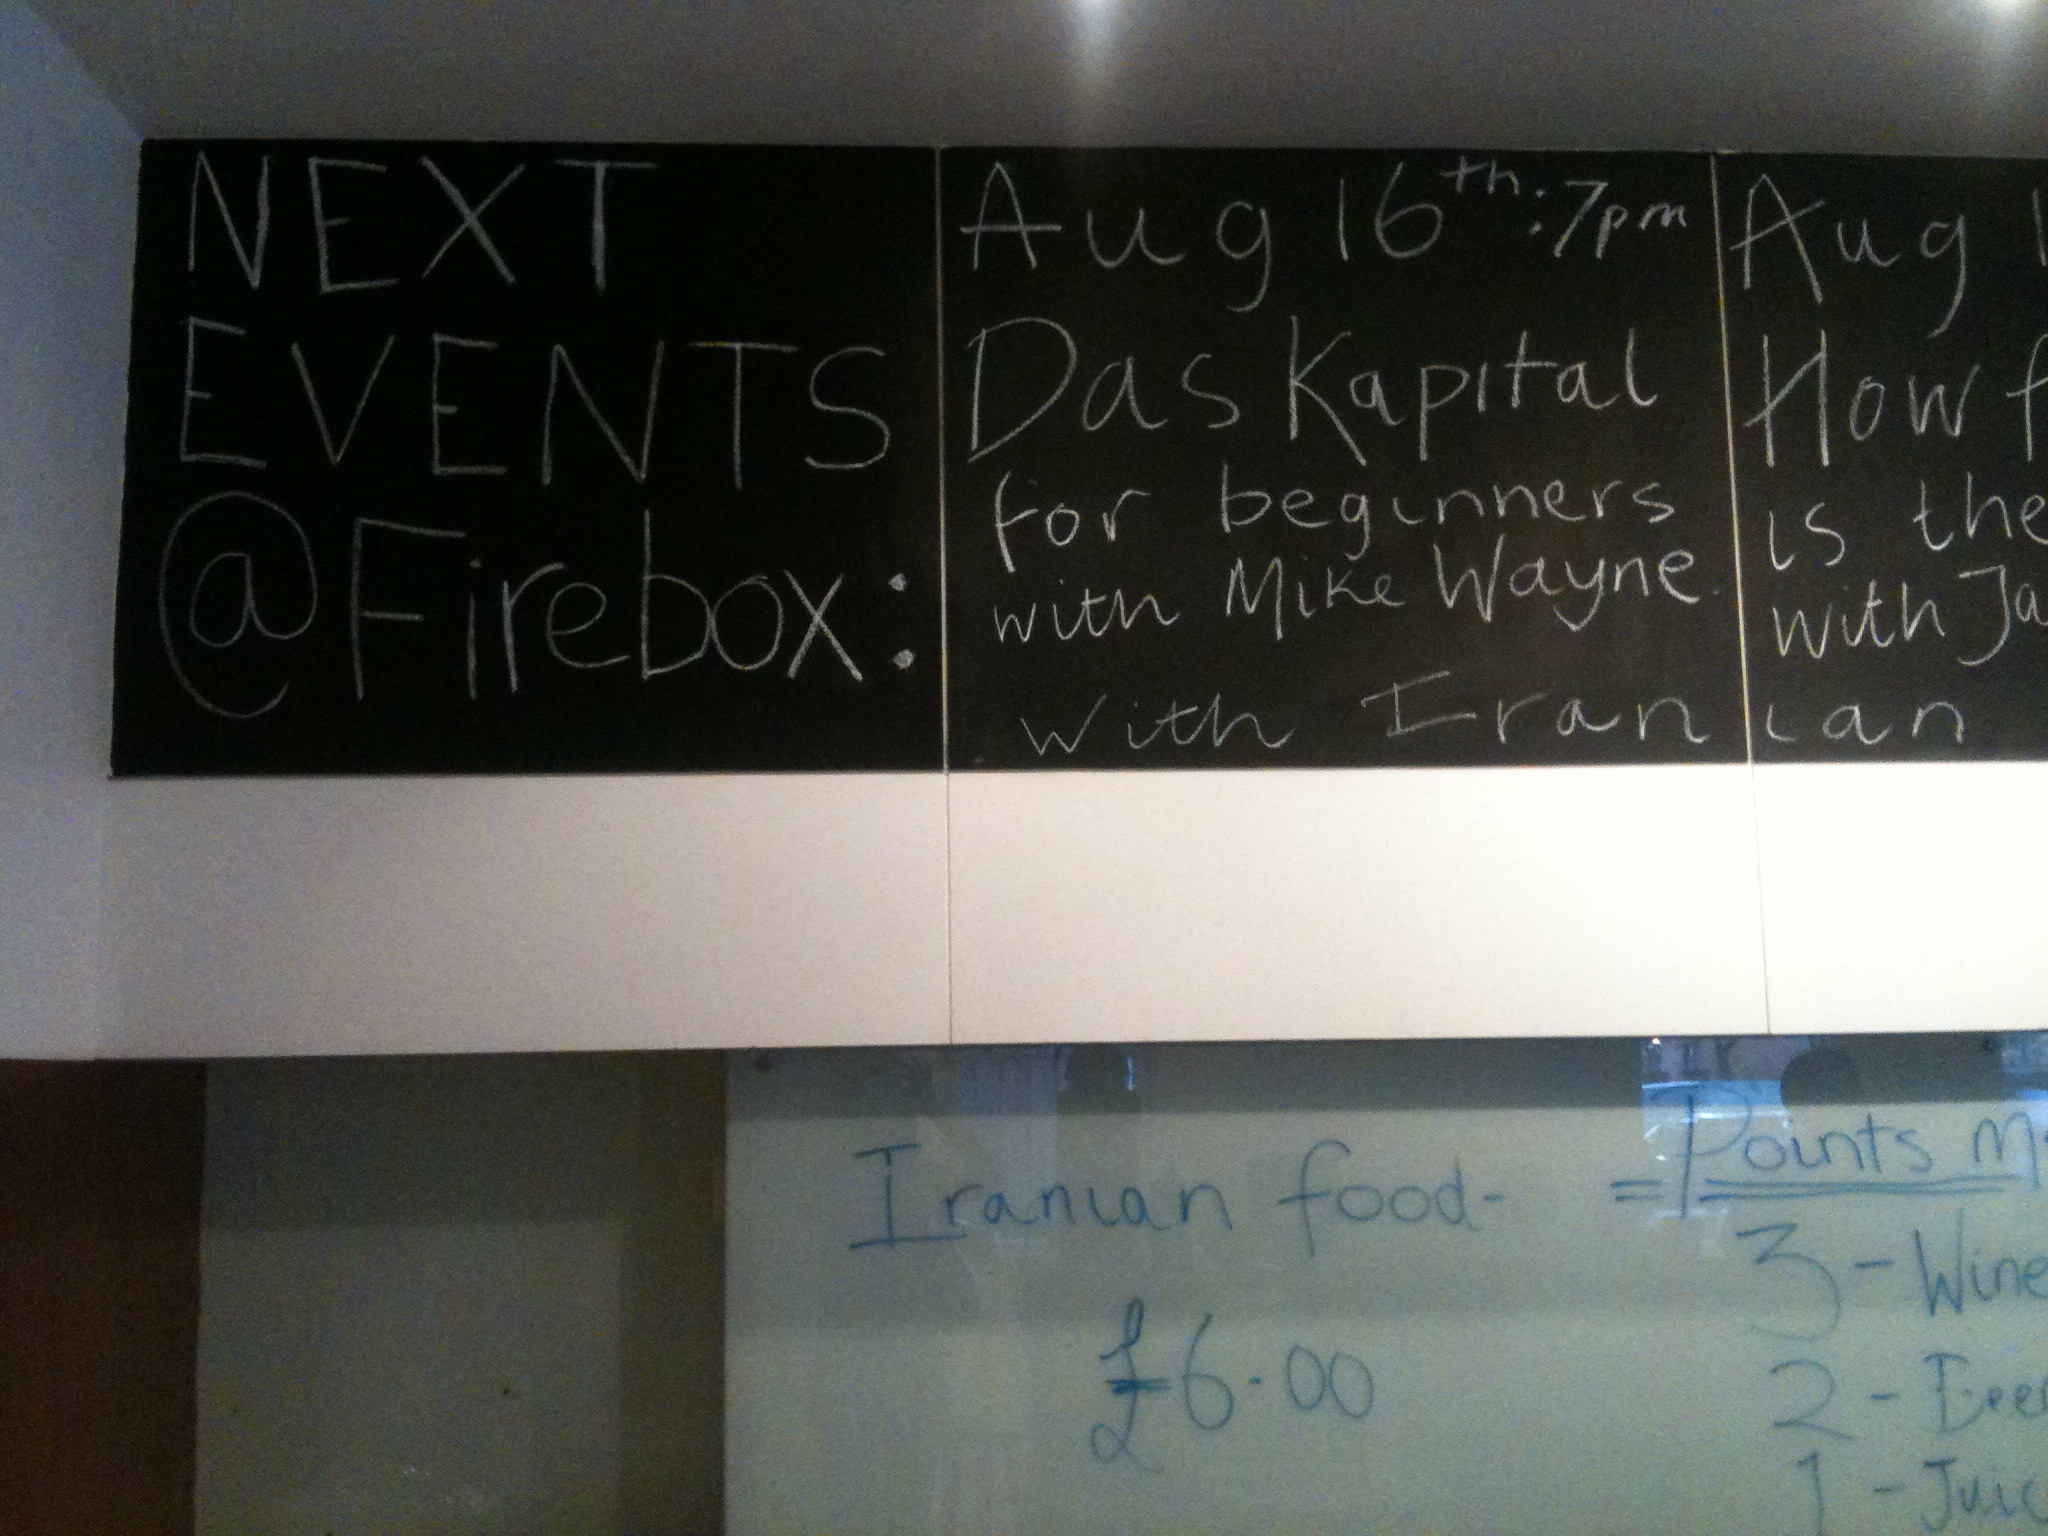 NEXT
EVENTS
@Firebox:
Aug 16th: 7pm
Das Kapital
for beginners
with Mike Wayne
Aug 1
How f
is the
with Ja
with Iranian
Iranian food-
£6.00
= Points M
3 - Wine
2 - Beer
1 - Juic